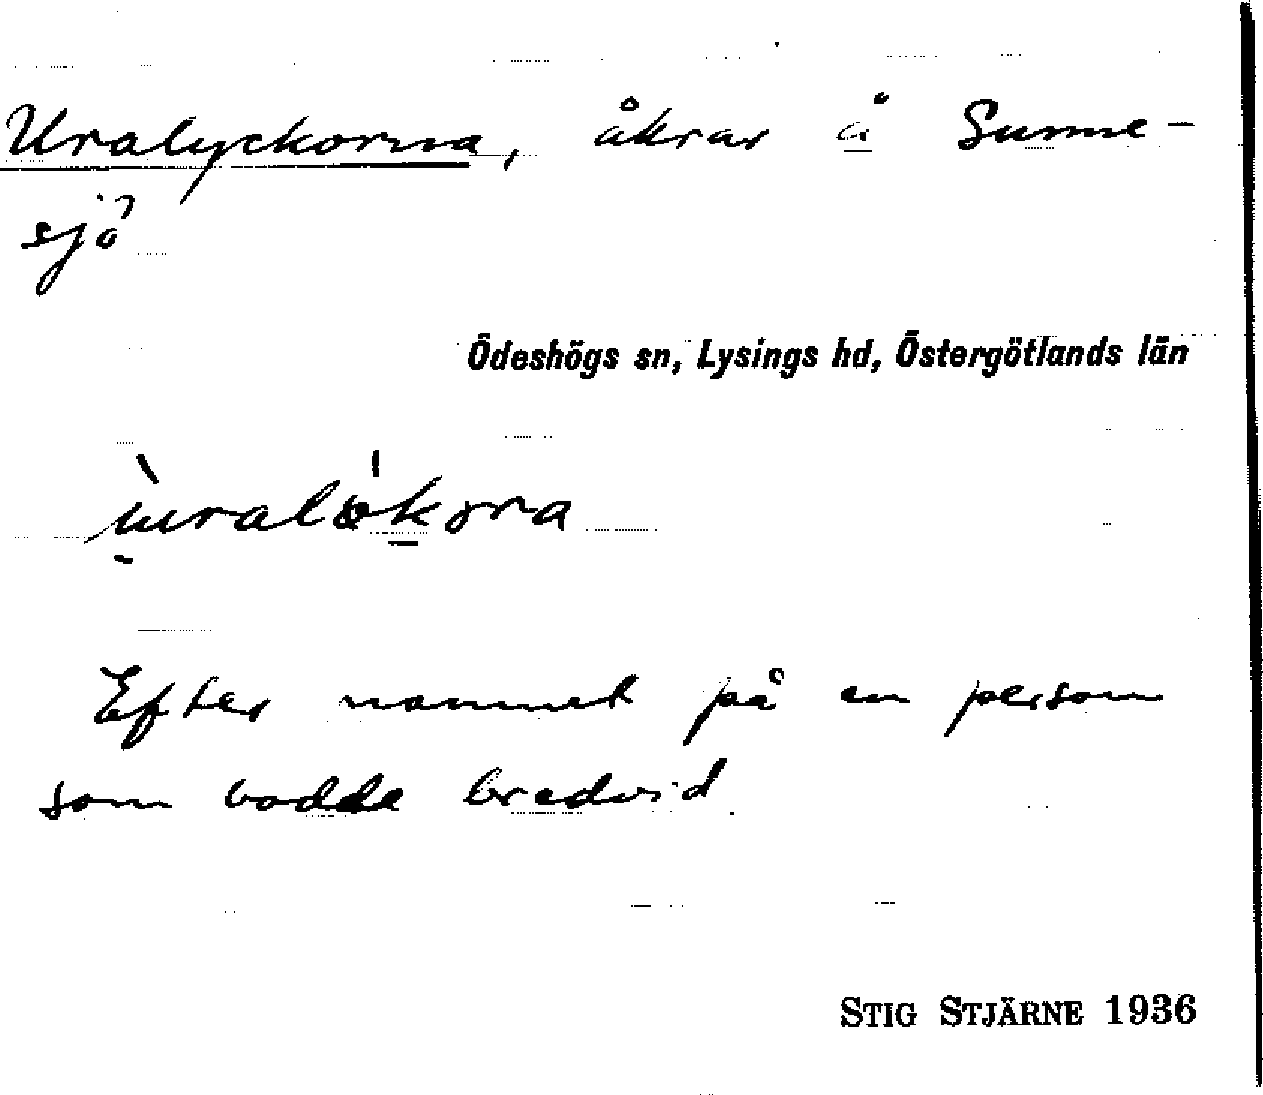 Uralyckorna, åkrar å Sunne-
sjö
Ödeshögs sn, Lysings hd, Östergötlands län
Efter namnet på en person
som bodde bredvid
STIG STJÄRNE 1936